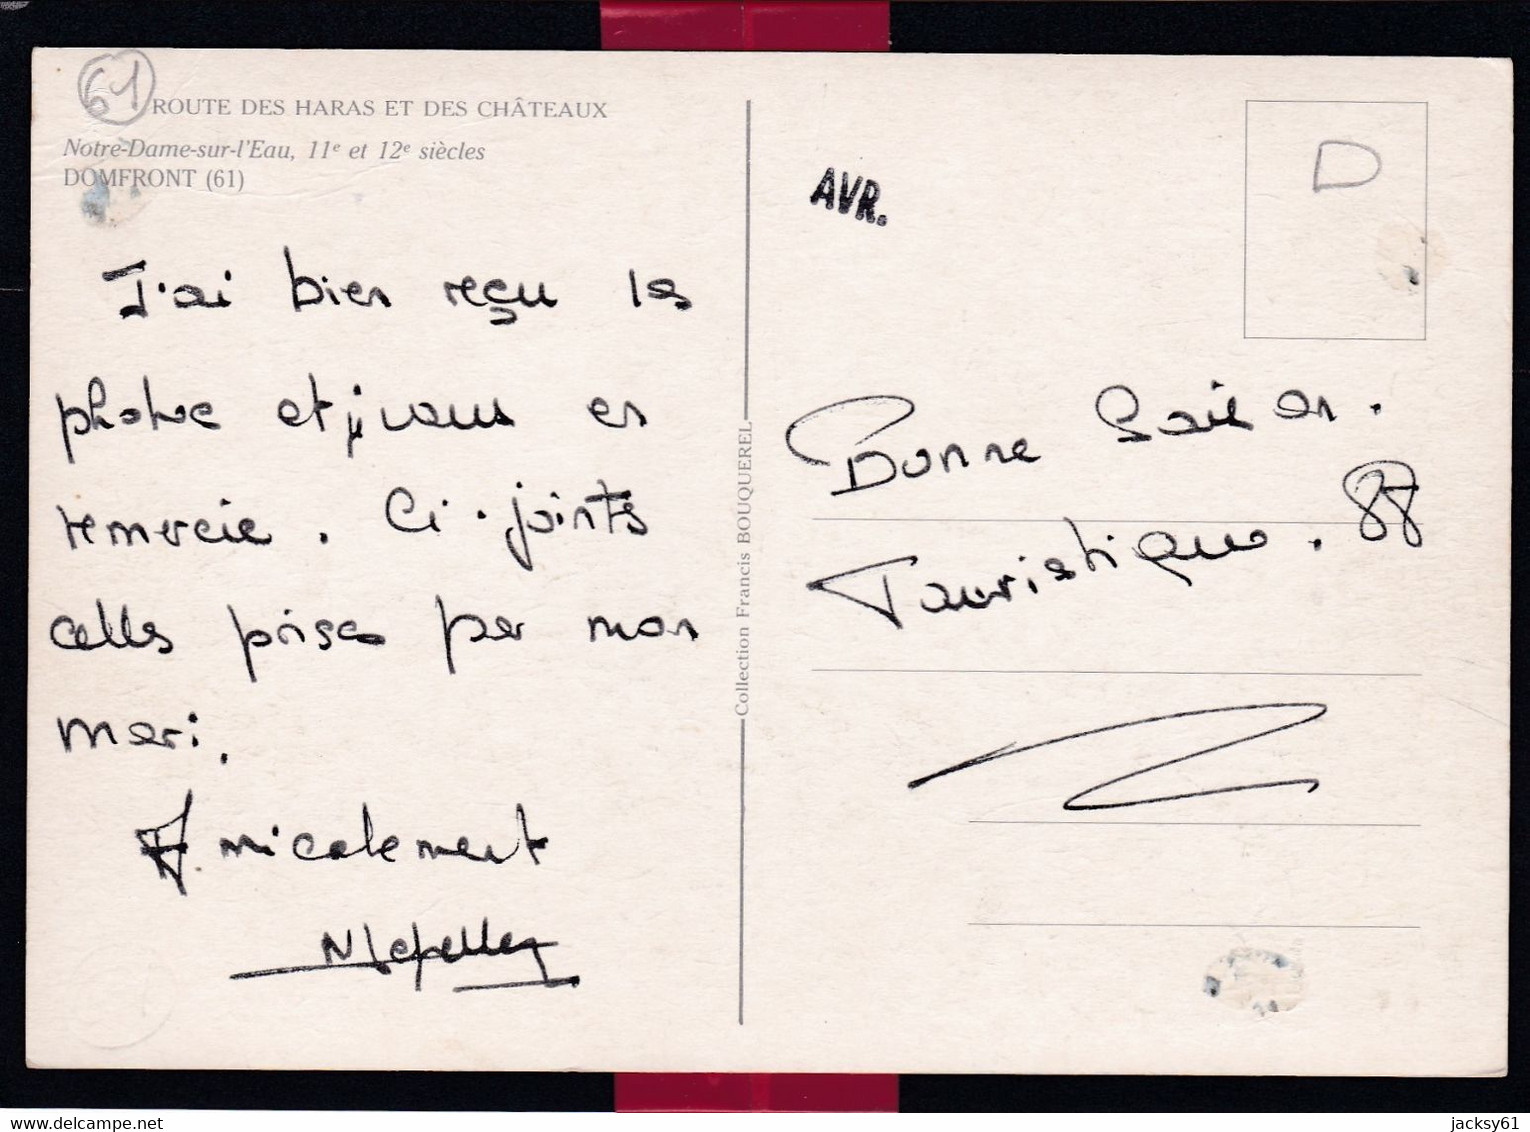 61
ROUTE DES HARAS ET DES CHÂTEAUX
Notre-Dame-sur-l'Eau, 11e et 12e siècles
DOMFRONT (61)
J'ai bien reçu les
photos et je vous en
remercie. Ci-joints
celles prises par mon
mari.
Amicalement
Collection Francis BOUQUEREL
AVR.
D
Bonne Saison.
Touristique. 87
jacksy61
delcampe.net